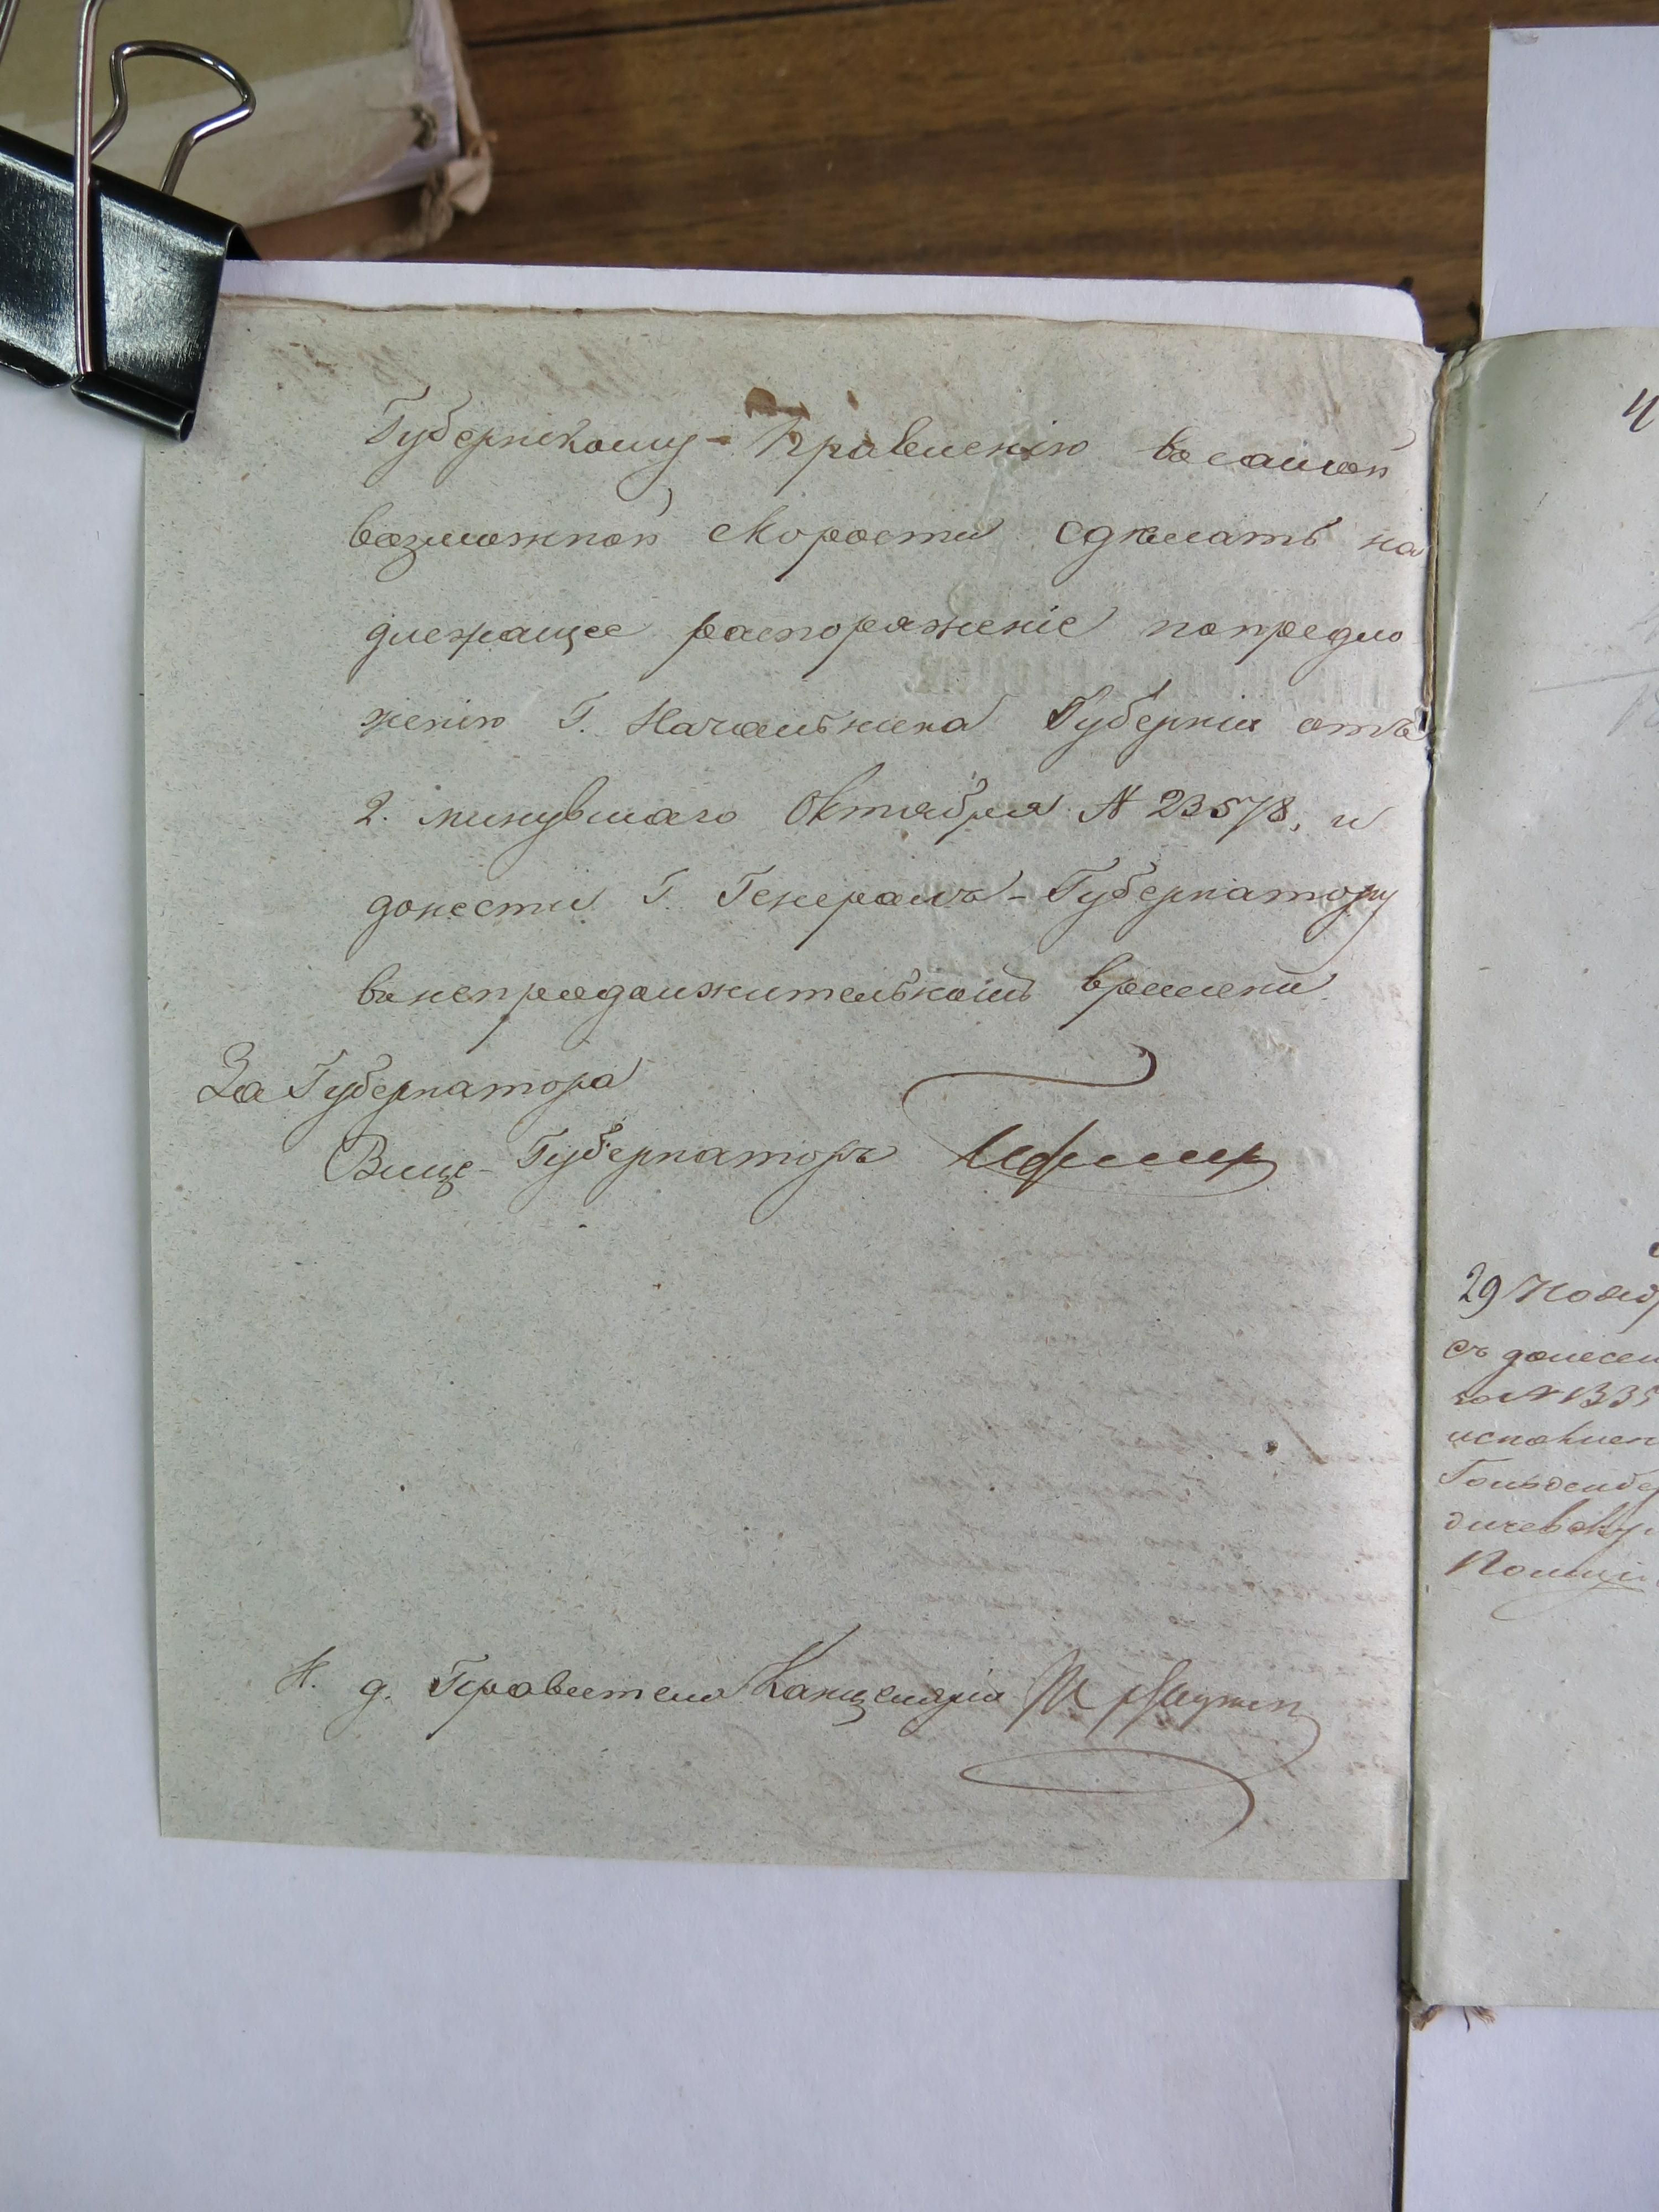 Губернскому-Правленію въ самой
возможной скорости сдѣлать на
длежащее распоряженіе по предло
женію Г. Начальника Губерніи отъ
2. минувшаго Октября № 23578, и
донести Г. Генералъ-Губернатору
въ непродолжительномъ времени
За Губернатора
Вице-Губернаторъ
И. д. Правителя Канцеляріи
29 Нояб
съ донесен
за № 1335
исполнен
Гольденбе
дичевску
Полиціи